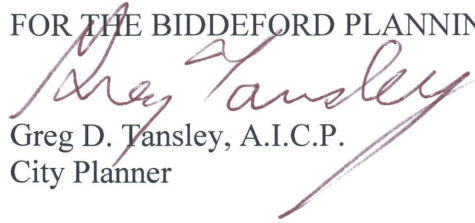 FOR THE BIDDEFORD PLANNIN
Greg Tansley
Greg D. Tansley, A.I.C.P.
City Planner